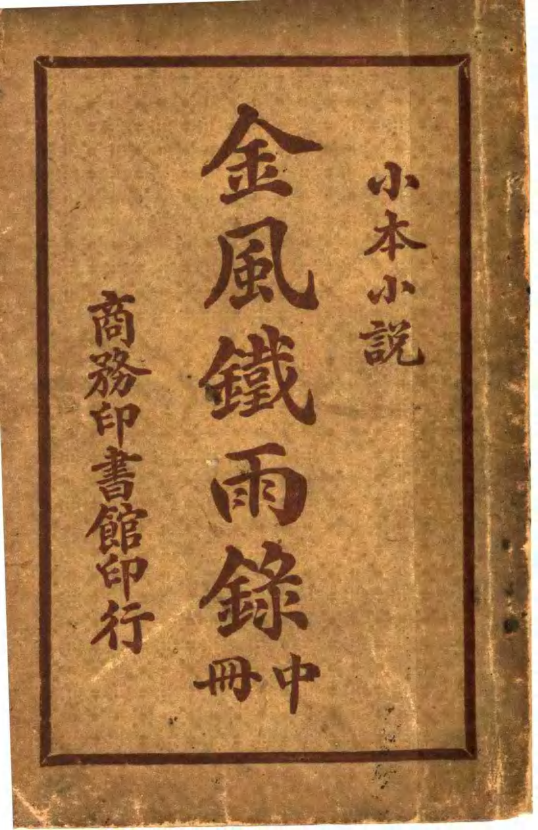 小本小説
金風鐵雨錄
中冊
商務印書館印行